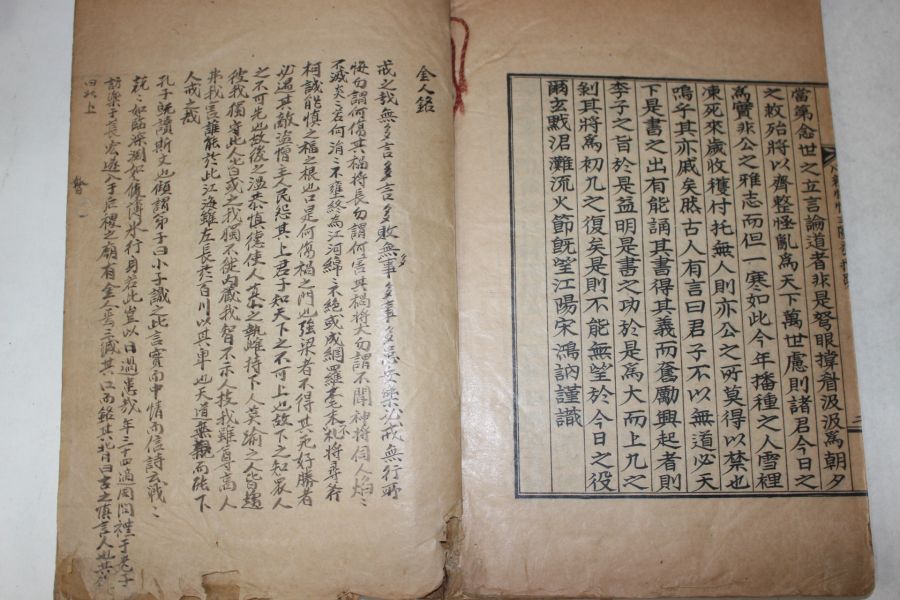 當第念世之立言論道者非是弩眼撑眉汲汲爲朝夕
之救殆將以齊整怪亂爲天下萬世慮則諸君今日之
爲實非公之雅志而但一寒如此今年播種之人雪裡
凍死來歲收穫付托無人則亦公之所莫得以禁也
嗚乎其亦戚矣然古人有言曰君子不以無道必天
下是書之出有能誦其書得其義而奮勵興起者則
李子之旨於是益明是書之功於是爲大而上九之
剝其將爲初九之復矣是則不能無望於今日之役
爾玄黓涒灘流火節旣望江陽宋鴻訥謹識
金人銘
戒之哉無多言多言多敗無事多事多患安樂必戒無行所
悔勿謂何傷其禍將長勿謂何害其禍將大勿謂不聞神將伺人焰〻
不滅炎〻若何涓〻不壅終爲江河綿〻不絶或成網羅毫末不札將尋斧
柯誠能慎之福之根也口是何傷禍之門也强梁者不得其死好勝者
必遇其敵盗憎主人民怨其上君子知天下之不可上也故下之知衆人
之不可先也故後之温恭慎德使人慕之執雌持下人莫踰之人皆趨
彼我獨守此人皆或之我獨不從内藏我智不示人技我雖尊高人
弗我害誰能於此江海雖左長於百川以其卑也天道無親而能下
人戒之哉
孔子旣讀斯文也傾謂弟子曰小子識之此言實而中情而信詩云戰〻
兢〻如臨深淵如履薄氷行身若此豈以口過患哉 年三十四適周問禮于老子
訪樂于長宏遊入于后稷之廟有金人焉三緘其口而銘其背曰古之慎言人也其
曰以上